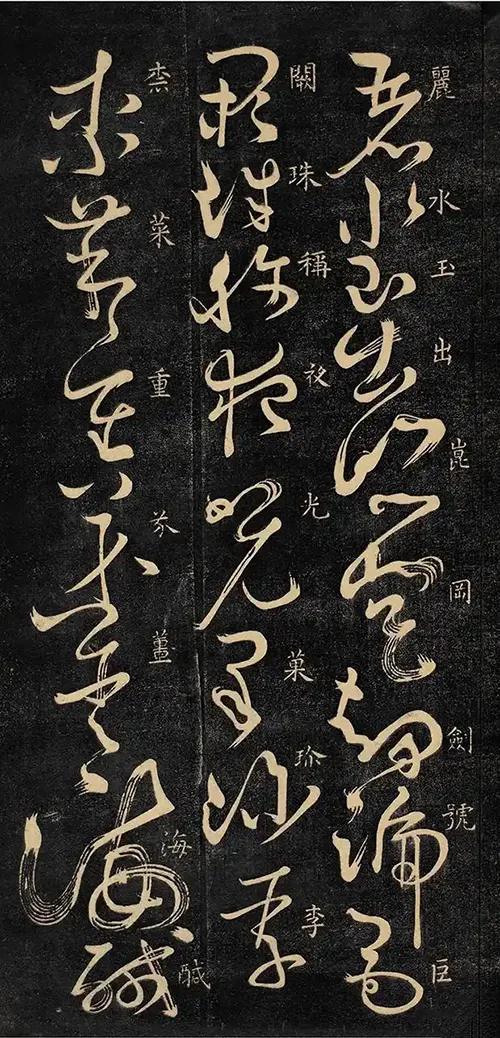 麗水玉出崑岡劍號巨
闕珠稱夜光菓珍李
柰菜重芥薑海醎